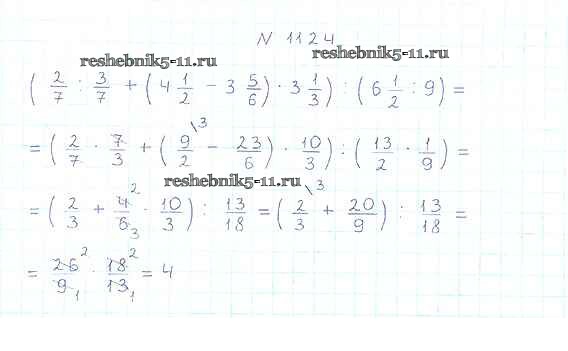 N 1124
reshebnik5-11.ru reshebnik5-11.ru
( 2/7 : 3/7 + ( 4 1/2 - 3 5/6 ) · 3 1/3 ) : ( 6 1/2 : 9 ) =
= ( 2/7 · 7/3 + ( 9/2 \3 - 23/6 ) · 10/3 ) : ( 13/2 · 1/9 ) =
reshebnik5-11.ru
= ( 2/3 + 4 2/6 3 · 10/3 ) : 13/18 = ( 2/3 \3 + 20/9 ) : 13/18 =
= 26 2/9 1 · 18 2/13 1 = 4